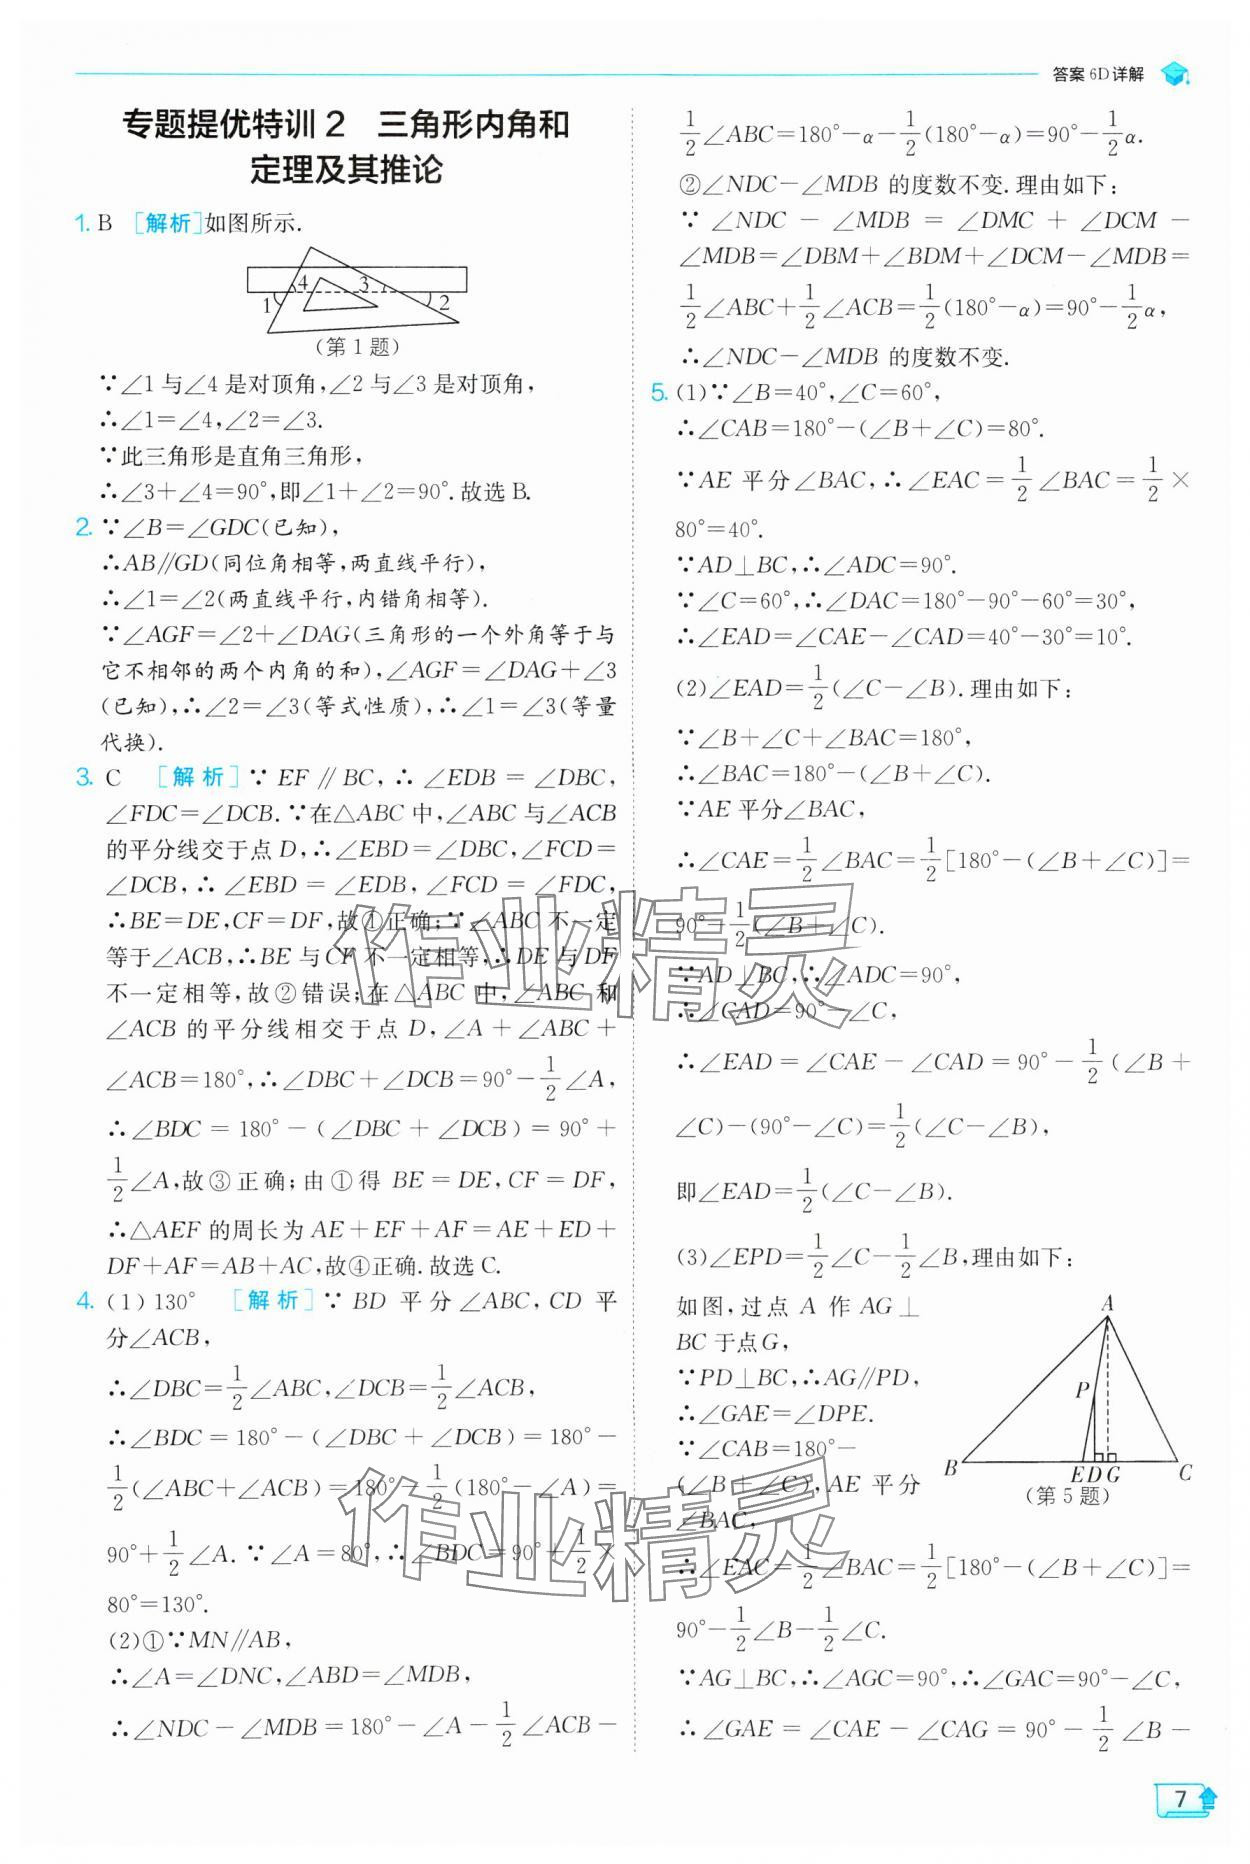 答案 6D 详解
专题提优特训 2　三角形内角和
定理及其推论
1. B　[解析]如图所示.
4 3
1 2
(第 1 题)
∵∠1 与∠4 是对顶角,∠2 与∠3 是对顶角,
∴∠1=∠4,∠2=∠3.
∵此三角形是直角三角形,
∴∠3+∠4=90°,即∠1+∠2=90°.故选 B.
2. ∵∠B=∠GDC(已知),
∴AB∥GD(同位角相等,两直线平行),
∴∠1=∠2(两直线平行,内错角相等).
∵∠AGF=∠2+∠DAG(三角形的一个外角等于与
它不相邻的两个内角的和),∠AGF=∠DAG+∠3
(已知),∴∠2=∠3(等式性质),∴∠1=∠3(等量
代换).
3. C　[解析]∵EF∥BC,∴∠EDB=∠DBC,
∠FDC=∠DCB.∵在△ABC 中,∠ABC 与∠ACB
的平分线交于点 D,∴∠EBD=∠DBC,∠FCD=
∠DCB,∴∠EBD=∠EDB,∠FCD=∠FDC,
∴BE=DE,CF=DF,故①正确;∵∠ABC 不一定
等于∠ACB,∴BE 与 CF 不一定相等,∴DE 与 DF
不一定相等,故②错误;在△ABC 中,∠ABC 和
∠ACB 的平分线相交于点 D,∠A+∠ABC+
∠ACB=180°,∴∠DBC+∠DCB=90°-1/2∠A,
∴∠BDC=180°-(∠DBC+∠DCB)=90°+
1/2∠A,故③正确;由①得 BE=DE,CF=DF,
∴△AEF 的周长为 AE+EF+AF=AE+ED+
DF+AF=AB+AC,故④正确.故选 C.
4. (1)130°　[解析]∵BD 平分∠ABC,CD 平
分∠ACB,
∴∠DBC=1/2∠ABC,∠DCB=1/2∠ACB,
∴∠BDC=180°-(∠DBC+∠DCB)=180°-
1/2(∠ABC+∠ACB)=180°-1/2(180°-∠A)=
90°+1/2∠A.∵∠A=80°,∴∠BDC=90°+1/2×
80°=130°.
(2)①∵MN∥AB,
∴∠A=∠DNC,∠ABD=∠MDB,
∴∠NDC-∠MDB=180°-∠A-1/2∠ACB-
1/2∠ABC=180°-α-1/2(180°-α)=90°-1/2α.
②∠NDC-∠MDB 的度数不变.理由如下:
∵∠NDC-∠MDB=∠DMC+∠DCM-
∠MDB=∠DBM+∠BDM+∠DCM-∠MDB=
1/2∠ABC+1/2∠ACB=1/2(180°-α)=90°-1/2α,
∴∠NDC-∠MDB 的度数不变.
5. (1)∵∠B=40°,∠C=60°,
∴∠CAB=180°-(∠B+∠C)=80°.
∵AE 平分∠BAC,∴∠EAC=1/2∠BAC=1/2×
80°=40°.
∵AD⊥BC,∴∠ADC=90°.
∵∠C=60°,∴∠DAC=180°-90°-60°=30°,
∴∠EAD=∠CAE-∠CAD=40°-30°=10°.
(2)∠EAD=1/2(∠C-∠B).理由如下:
∵∠B+∠C+∠BAC=180°,
∴∠BAC=180°-(∠B+∠C).
∵AE 平分∠BAC,
∴∠CAE=1/2∠BAC=1/2[180°-(∠B+∠C)]=
90°-1/2(∠B+∠C).
∵AD⊥BC,∴∠ADC=90°,
∴∠CAD=90°-∠C,
∴∠EAD=∠CAE-∠CAD=90°-1/2(∠B+
∠C)-(90°-∠C)=1/2(∠C-∠B),
即∠EAD=1/2(∠C-∠B).
(3)∠EPD=1/2∠C-1/2∠B,理由如下:
如图,过点 A 作 AG⊥
BC 于点G,
∵PD⊥BC,∴AG∥PD,
∴∠GAE=∠DPE.
∵∠CAB=180°-
(∠B+∠C),AE 平分
∠BAC,
A
P
B EDG C
(第 5 题)
∴∠EAC=1/2∠BAC=1/2[180°-(∠B+∠C)]=
90°-1/2∠B-1/2∠C.
∵AG⊥BC,∴∠AGC=90°,∴∠GAC=90°-∠C,
∴∠GAE=∠CAE-∠CAG=90°-1/2∠B-
7
作业精灵
作业精灵